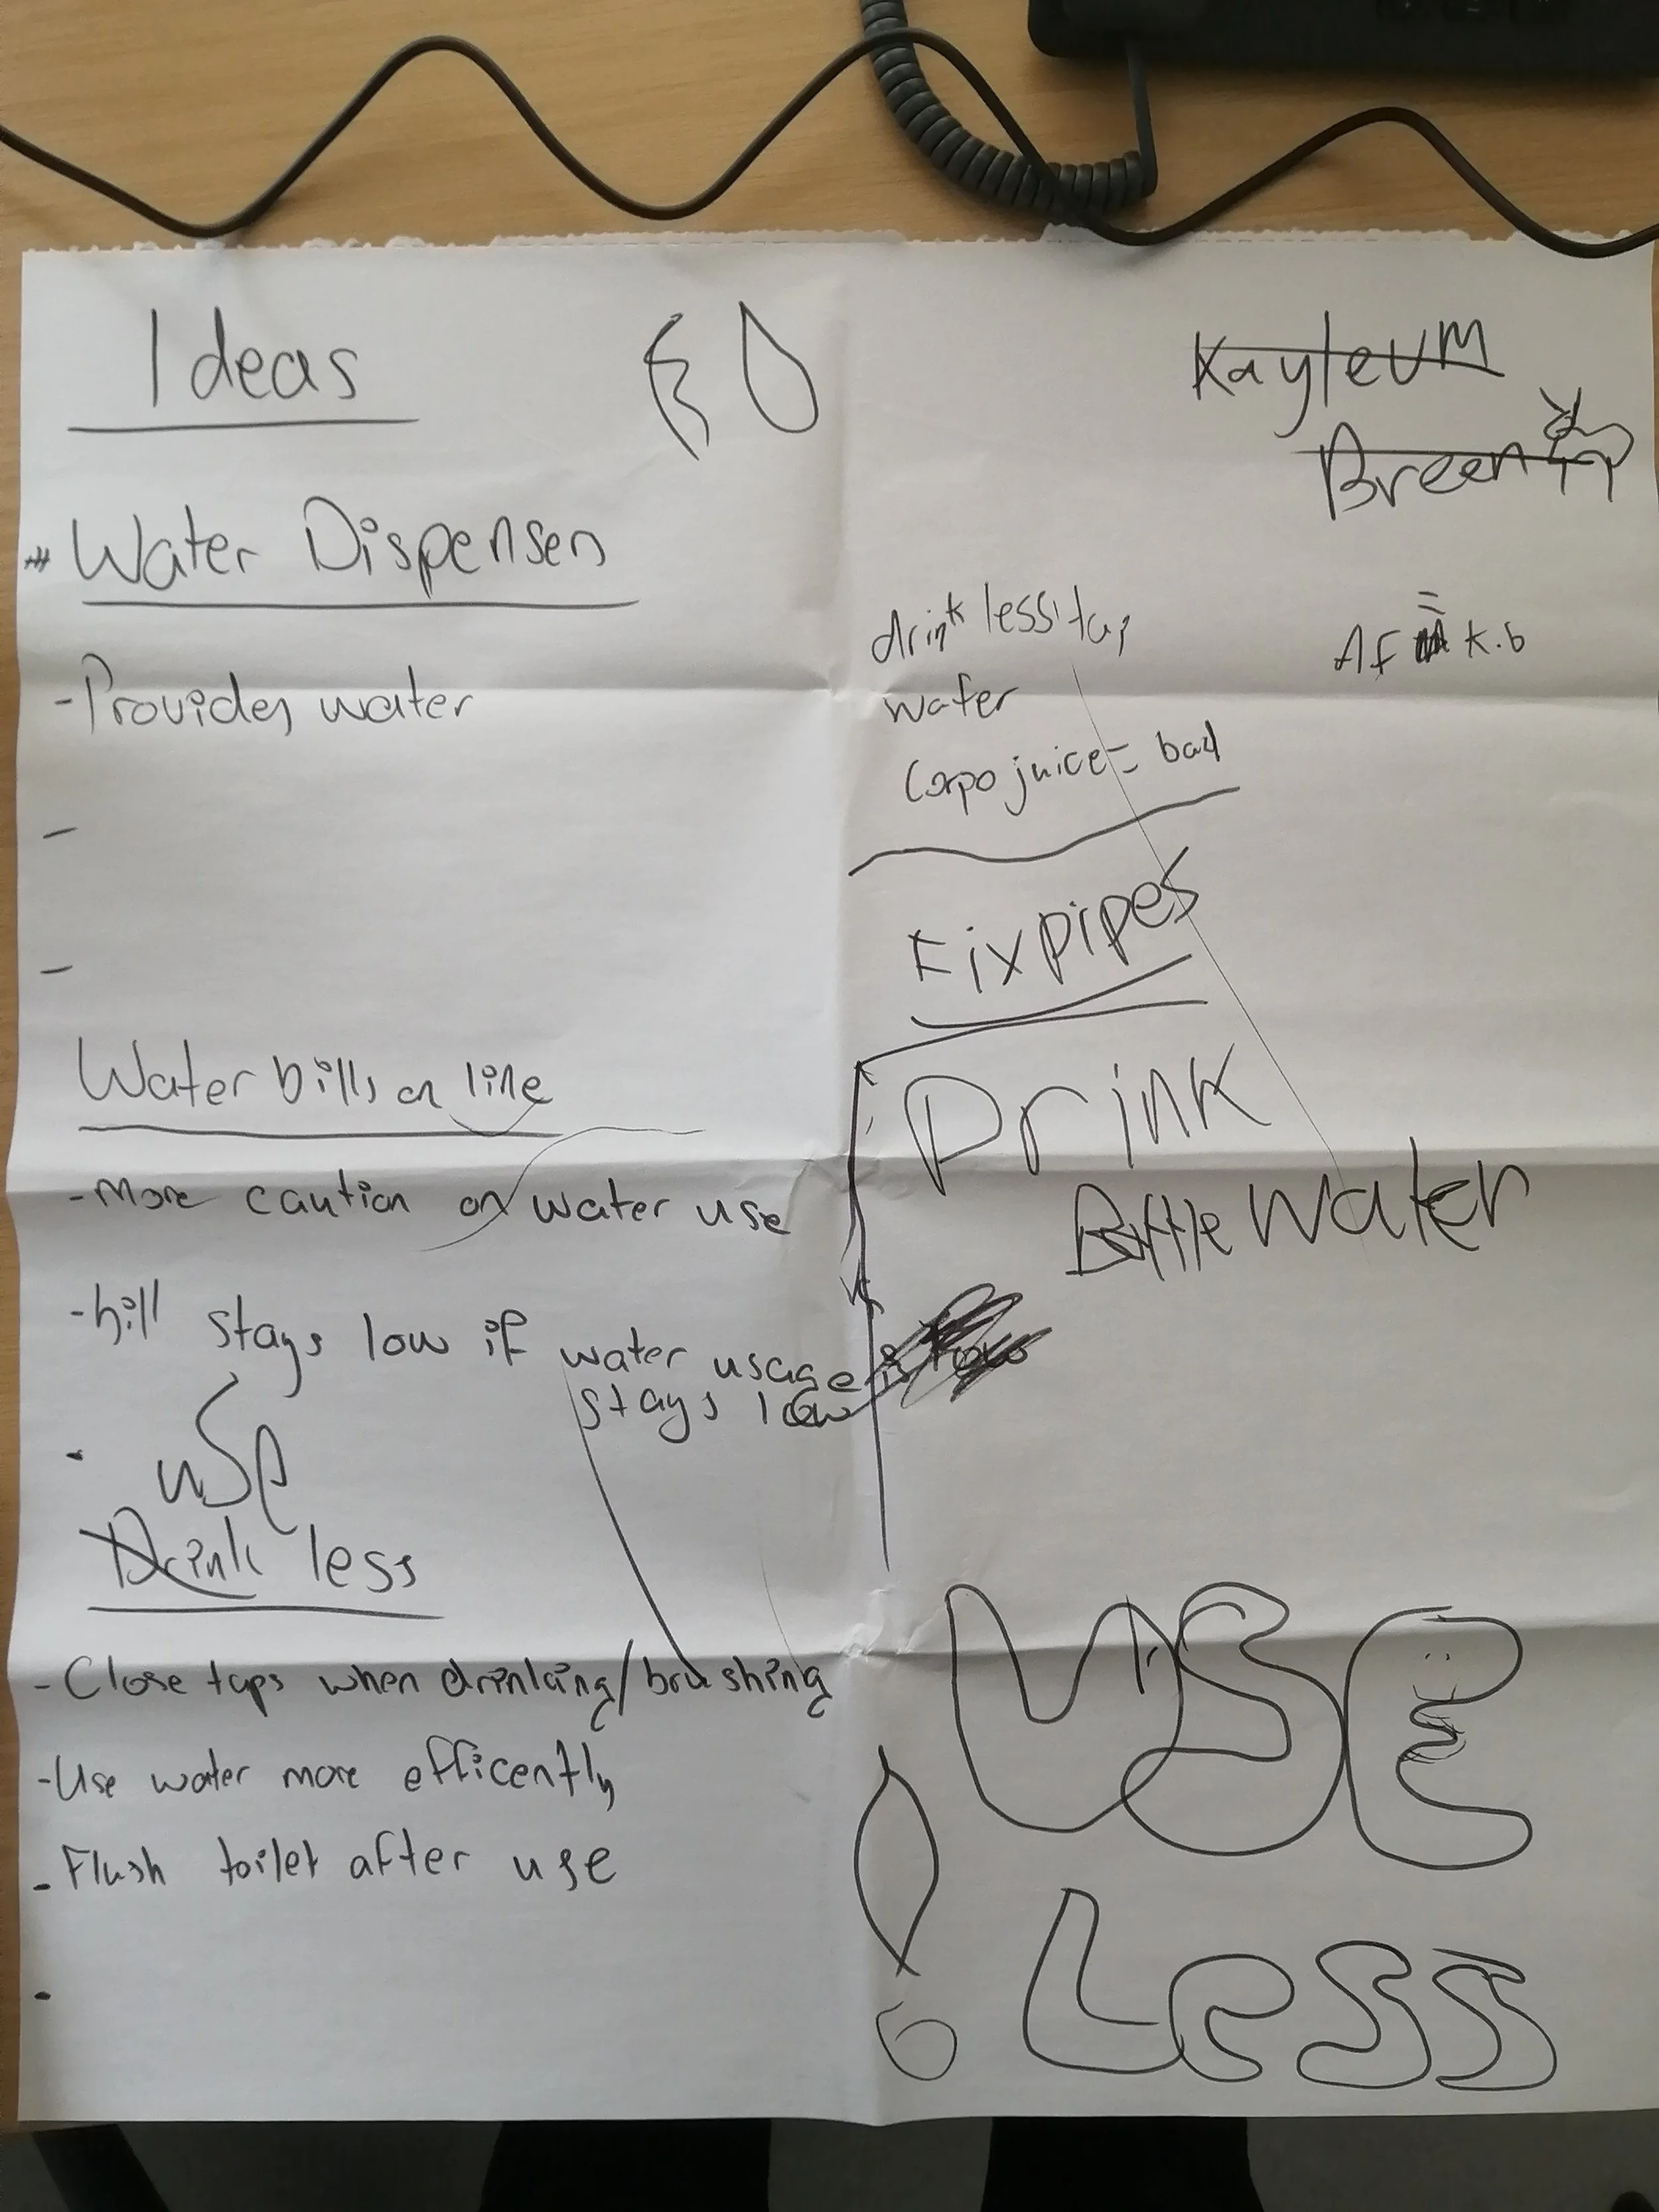 Ideas
KayleuM
Breen
Water Dispensers
drink less tap
water
AF K.b
-Provides water
Corpo juice = bad
-
Fix pipes
-
Water bills on line
Drink
Bottle water
-More caution on water use
-bill stays low if water usage is low
stays low
use
Drink less
-Close taps when drinking/brushing
-Use water more efficently
-Flush toilet after use
USE
Less